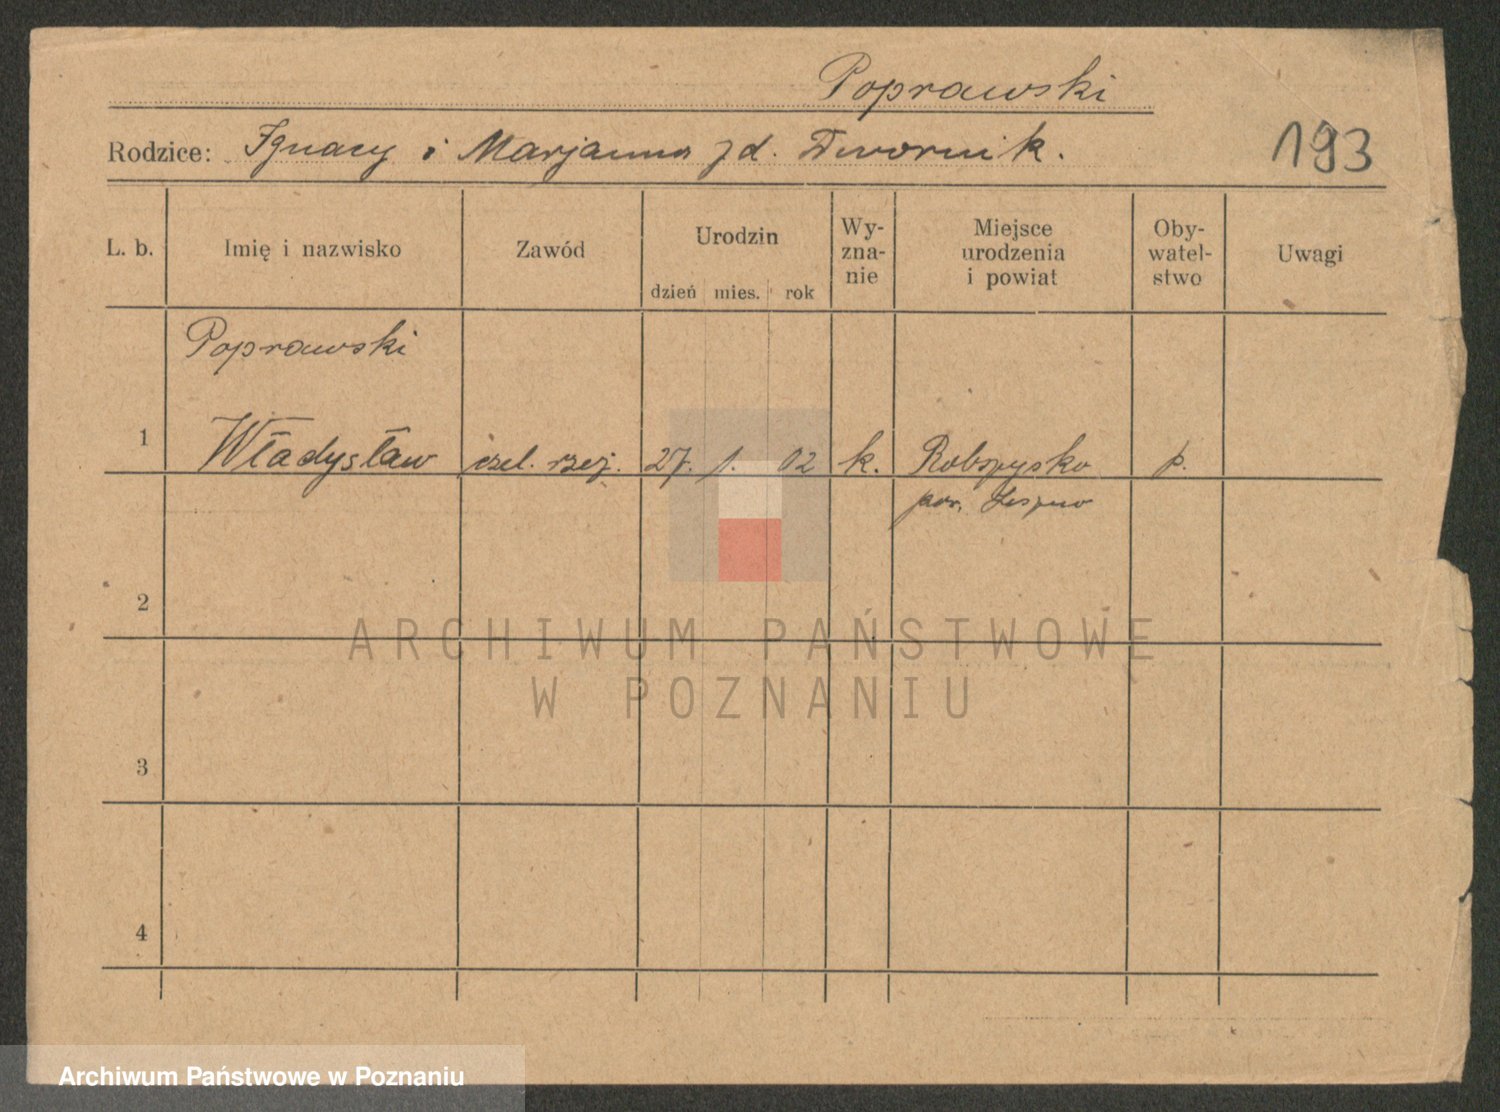 Poprawski
Rodzice: Ignacy i Marjanna zd. Dwornik.
193
L. b. Imię i nazwisko Zawód Urodzin dzień mies. rok Wy-zna-nie Miejsce urodzenia i powiat Oby-watel-stwo Uwagi
Poprawski
1 Władysław czel. rzeź. 27. 1. 02 k. Robczysko p.
pow. Leszno
2
3
4
ARCHIWUM PAŃSTWOWE
W POZNANIU
Archiwum Państwowe w Poznaniu